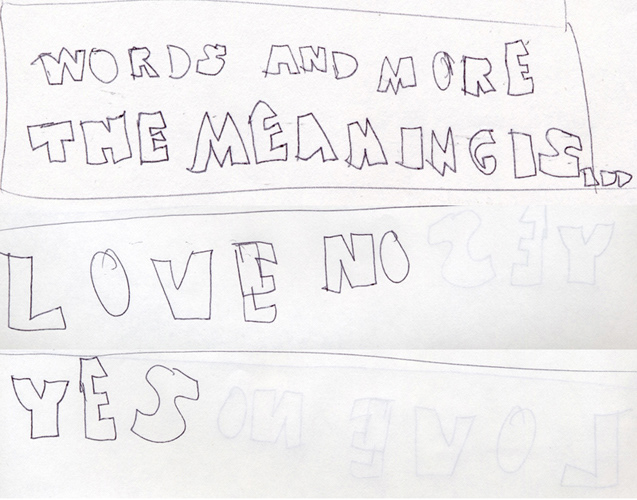 WORDS AND MORE
THE MEANING IS
LOVE NO
YES